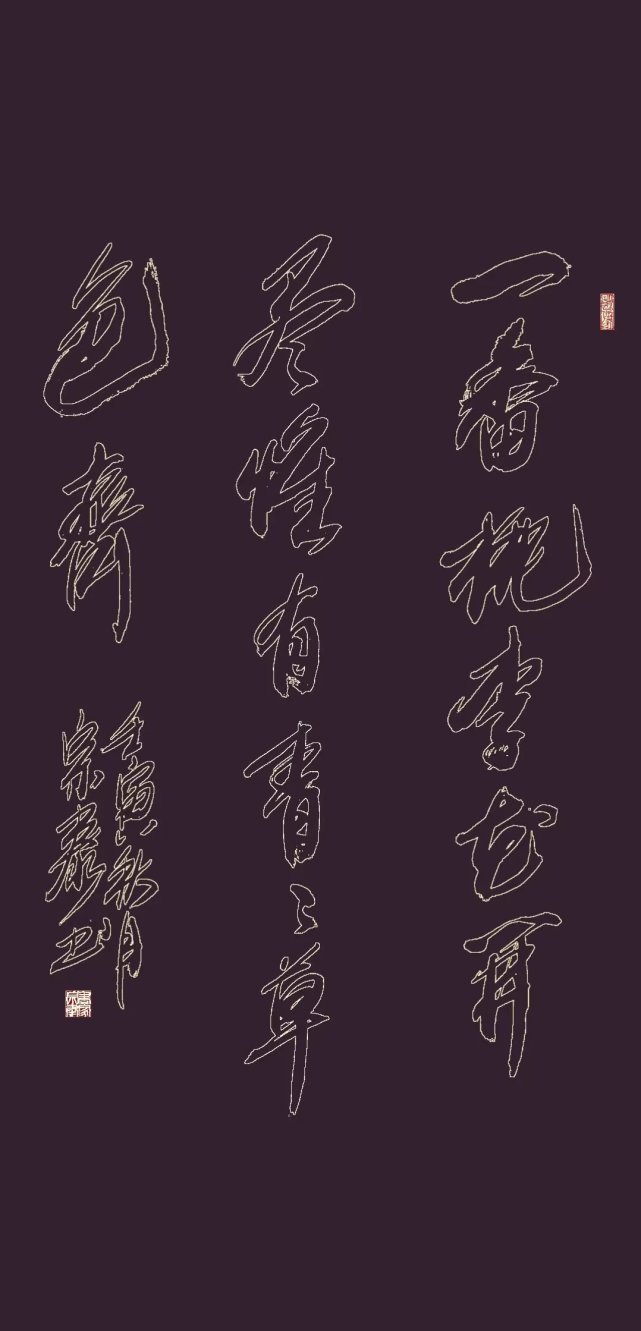 一番桃李花開
尽惟有青々草
色齊
壬寅秋月
宗嚴书